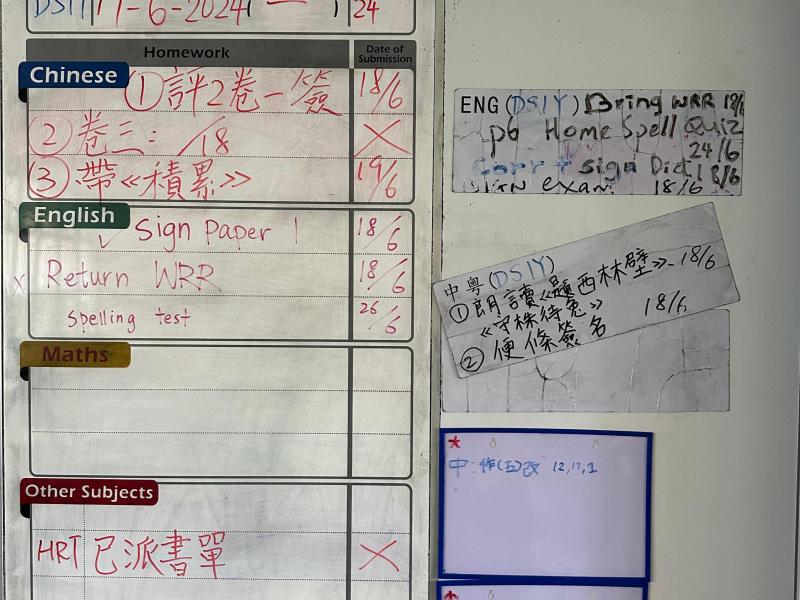 DS1Y 17-6-2024 (一) 24
Homework
Date of Submission
Chinese
① 評2卷一簽 18/6
② 卷三: /18 X
③ 帶《積累》 19/6
English
✓ Sign Paper 1 18/6
x Return WRR 18/6
Spelling test 26/6
Maths
Other Subjects
HRT 已派書單 X
ENG (DS1Y) Bring WRR 18/6
p6 Home Spell Quiz
24/6
Corr + sign Dict 18/6
SIGN exam 18/6
中粵 (DS1Y)
① 朗讀《題西林壁》- 18/6
《守株待兔》
② 便條簽名 18/6
中: 作(五)改 12, 17, 1